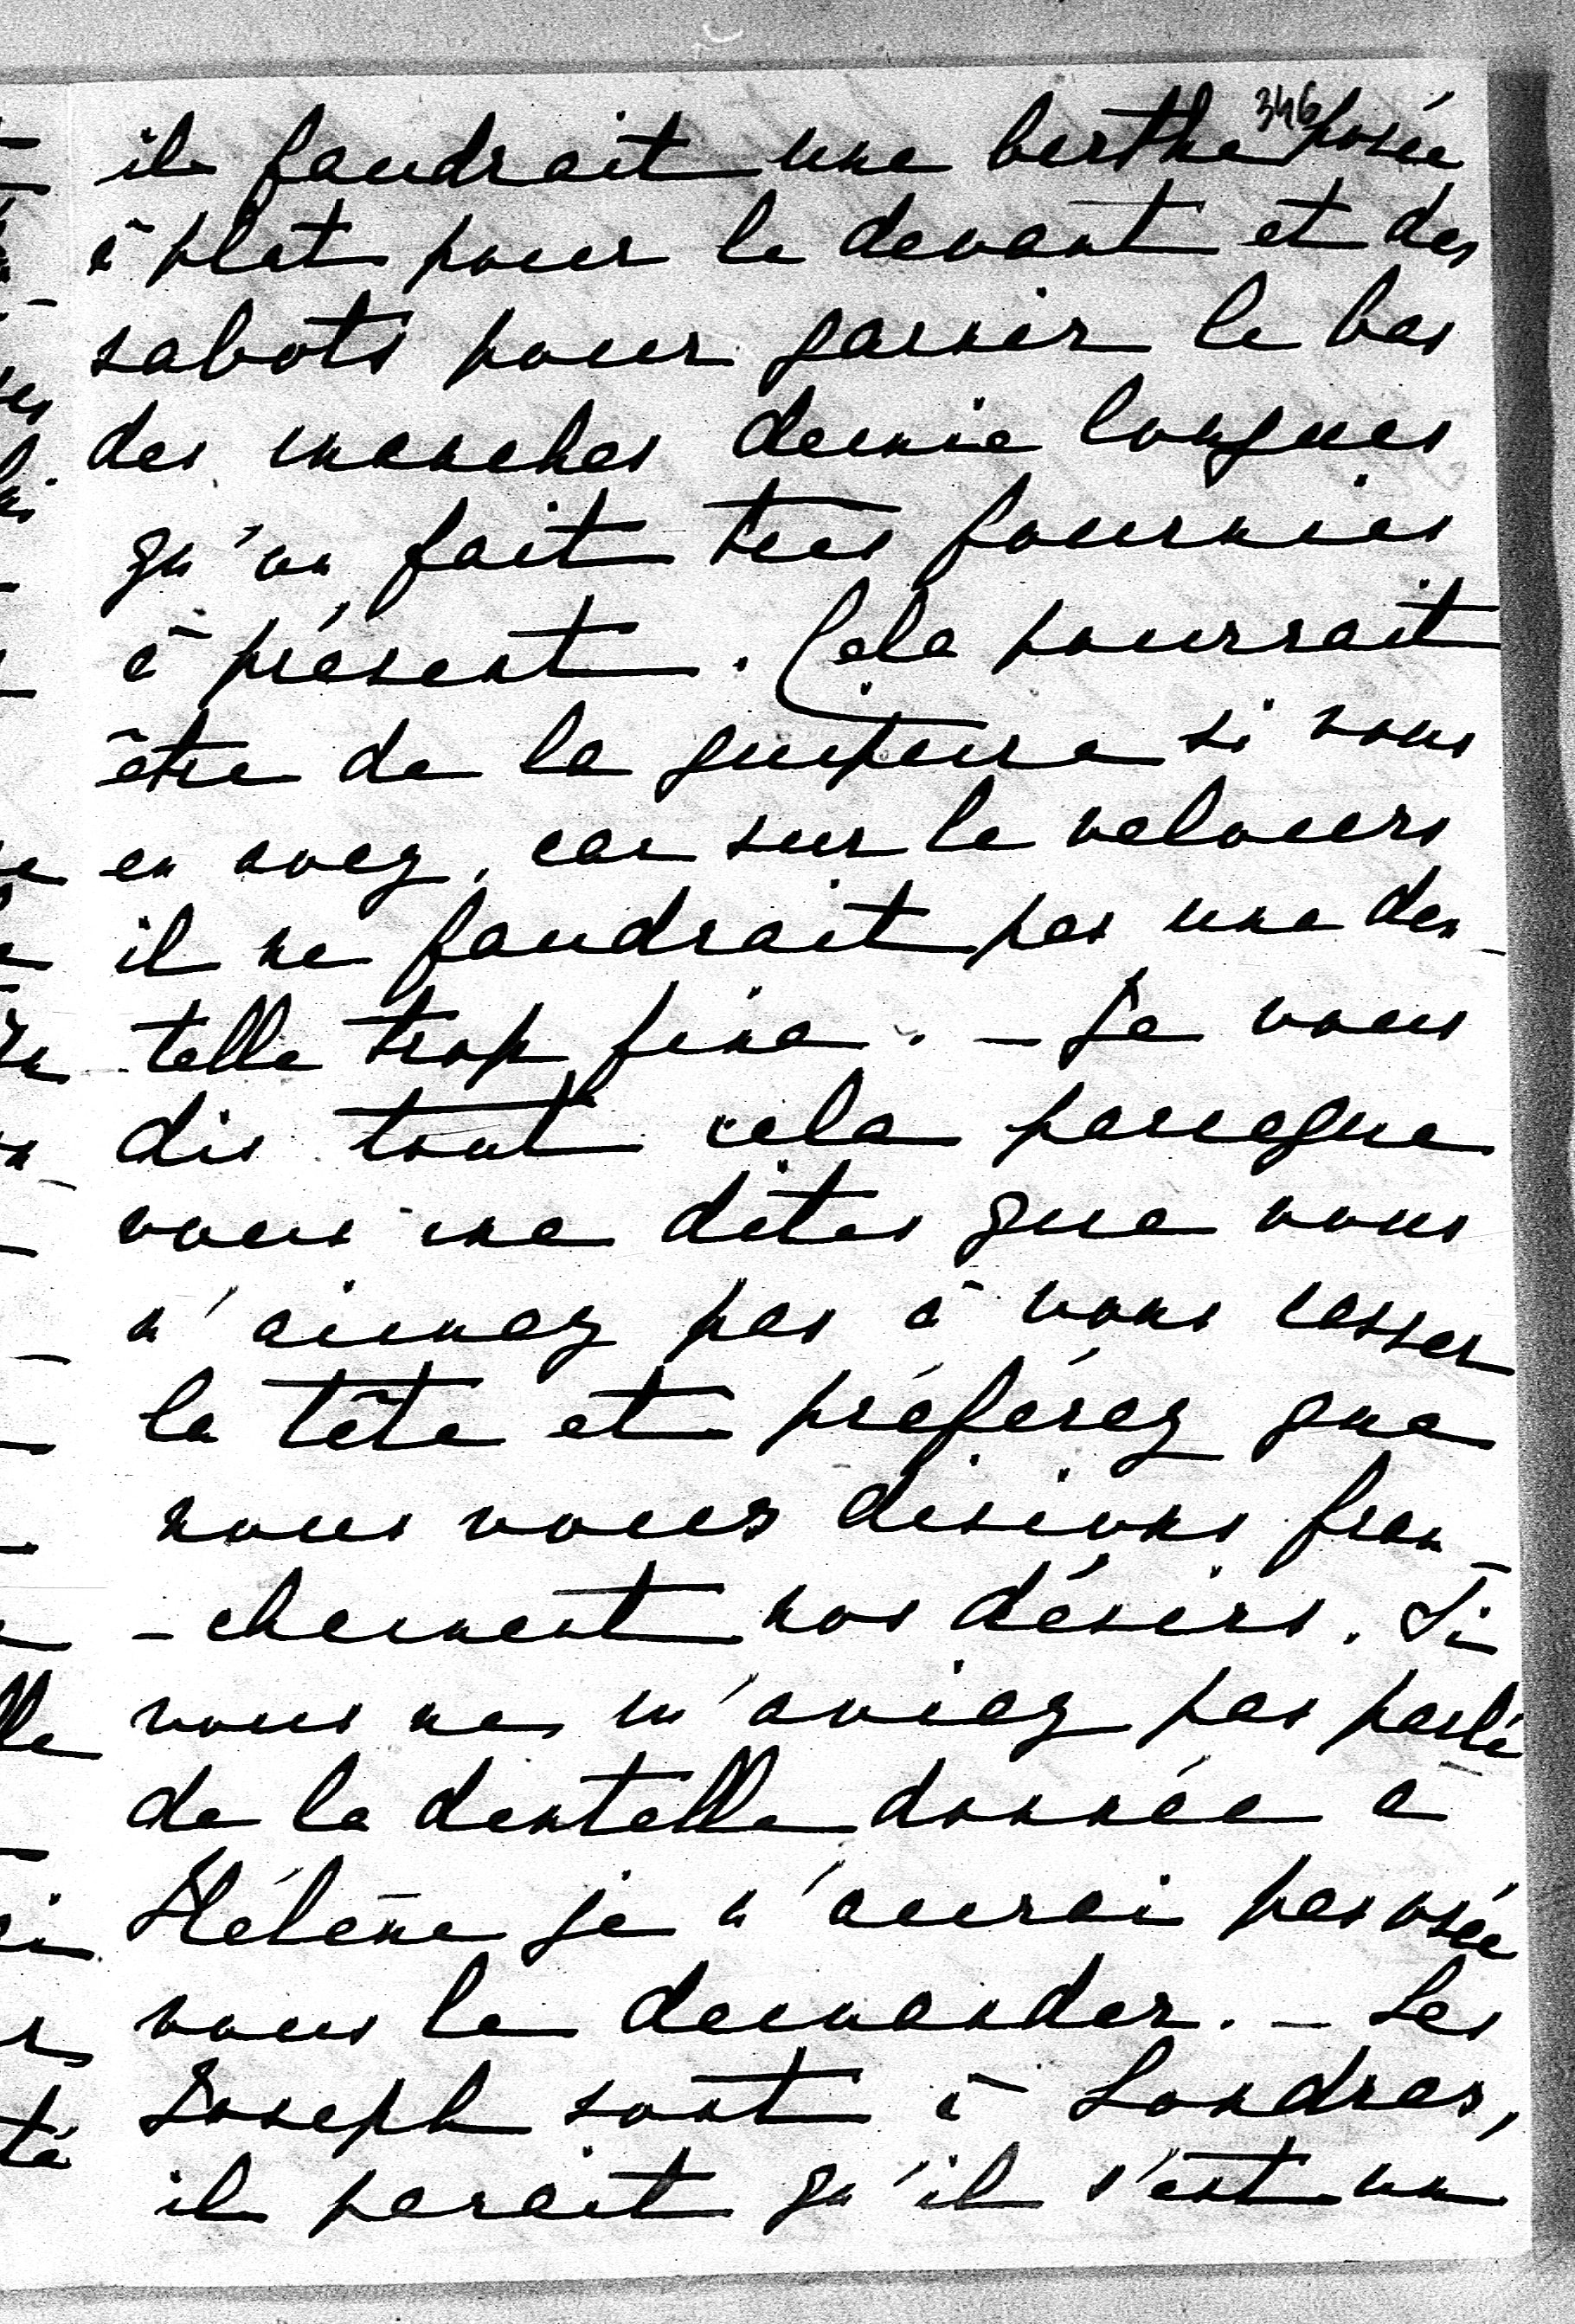 346
il faudrait une berthe posée
à plat pour le devant et des
sabots pour garnir le bas
des manches demie longues
qu'on fait très fournies
à présent. Cela pourrait
être de la guipure si vous
en avez, car sur le velours
il ne faudrait pas une den-
telle trop fine. - Je vous
dis tout cela parceque
vous me dites que vous
n'aimez pas à vous casser
la tête et préférez que
nous vous disions fran-
-chement nos désirs. Si
vous ne m'aviez pas parlé
de la dentelle donnée à
Hélène je n'aurai pas osée
vous le demander. - Les
Joseph sont à Londres,
il parait qu'il s'est un